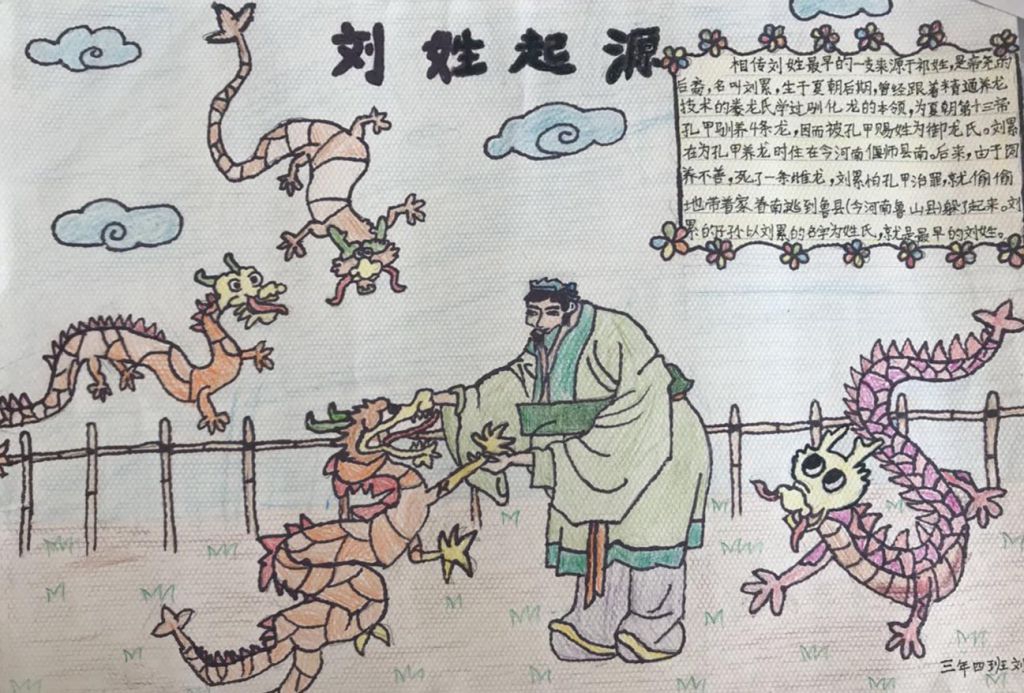 刘姓起源
相传刘姓最早的一支来源于祁姓,是帝尧的
后裔,名叫刘累,生于夏朝后期,曾经跟着精通养龙
技术的豢龙氏学过驯化龙的本领,为夏朝第十三帝
孔甲驯养4条龙,因而被孔甲赐姓为御龙氏。刘累
在为孔甲养龙时住在今河南偃师县南。后来,由于饲
养不善,死了一条雌龙,刘累怕孔甲治罪,就偷偷
地带着家眷南逃到鲁县(今河南鲁山县)躲了起来。刘
累的子孙以刘累的名字为姓氏,就是最早的刘姓。
三年四班刘